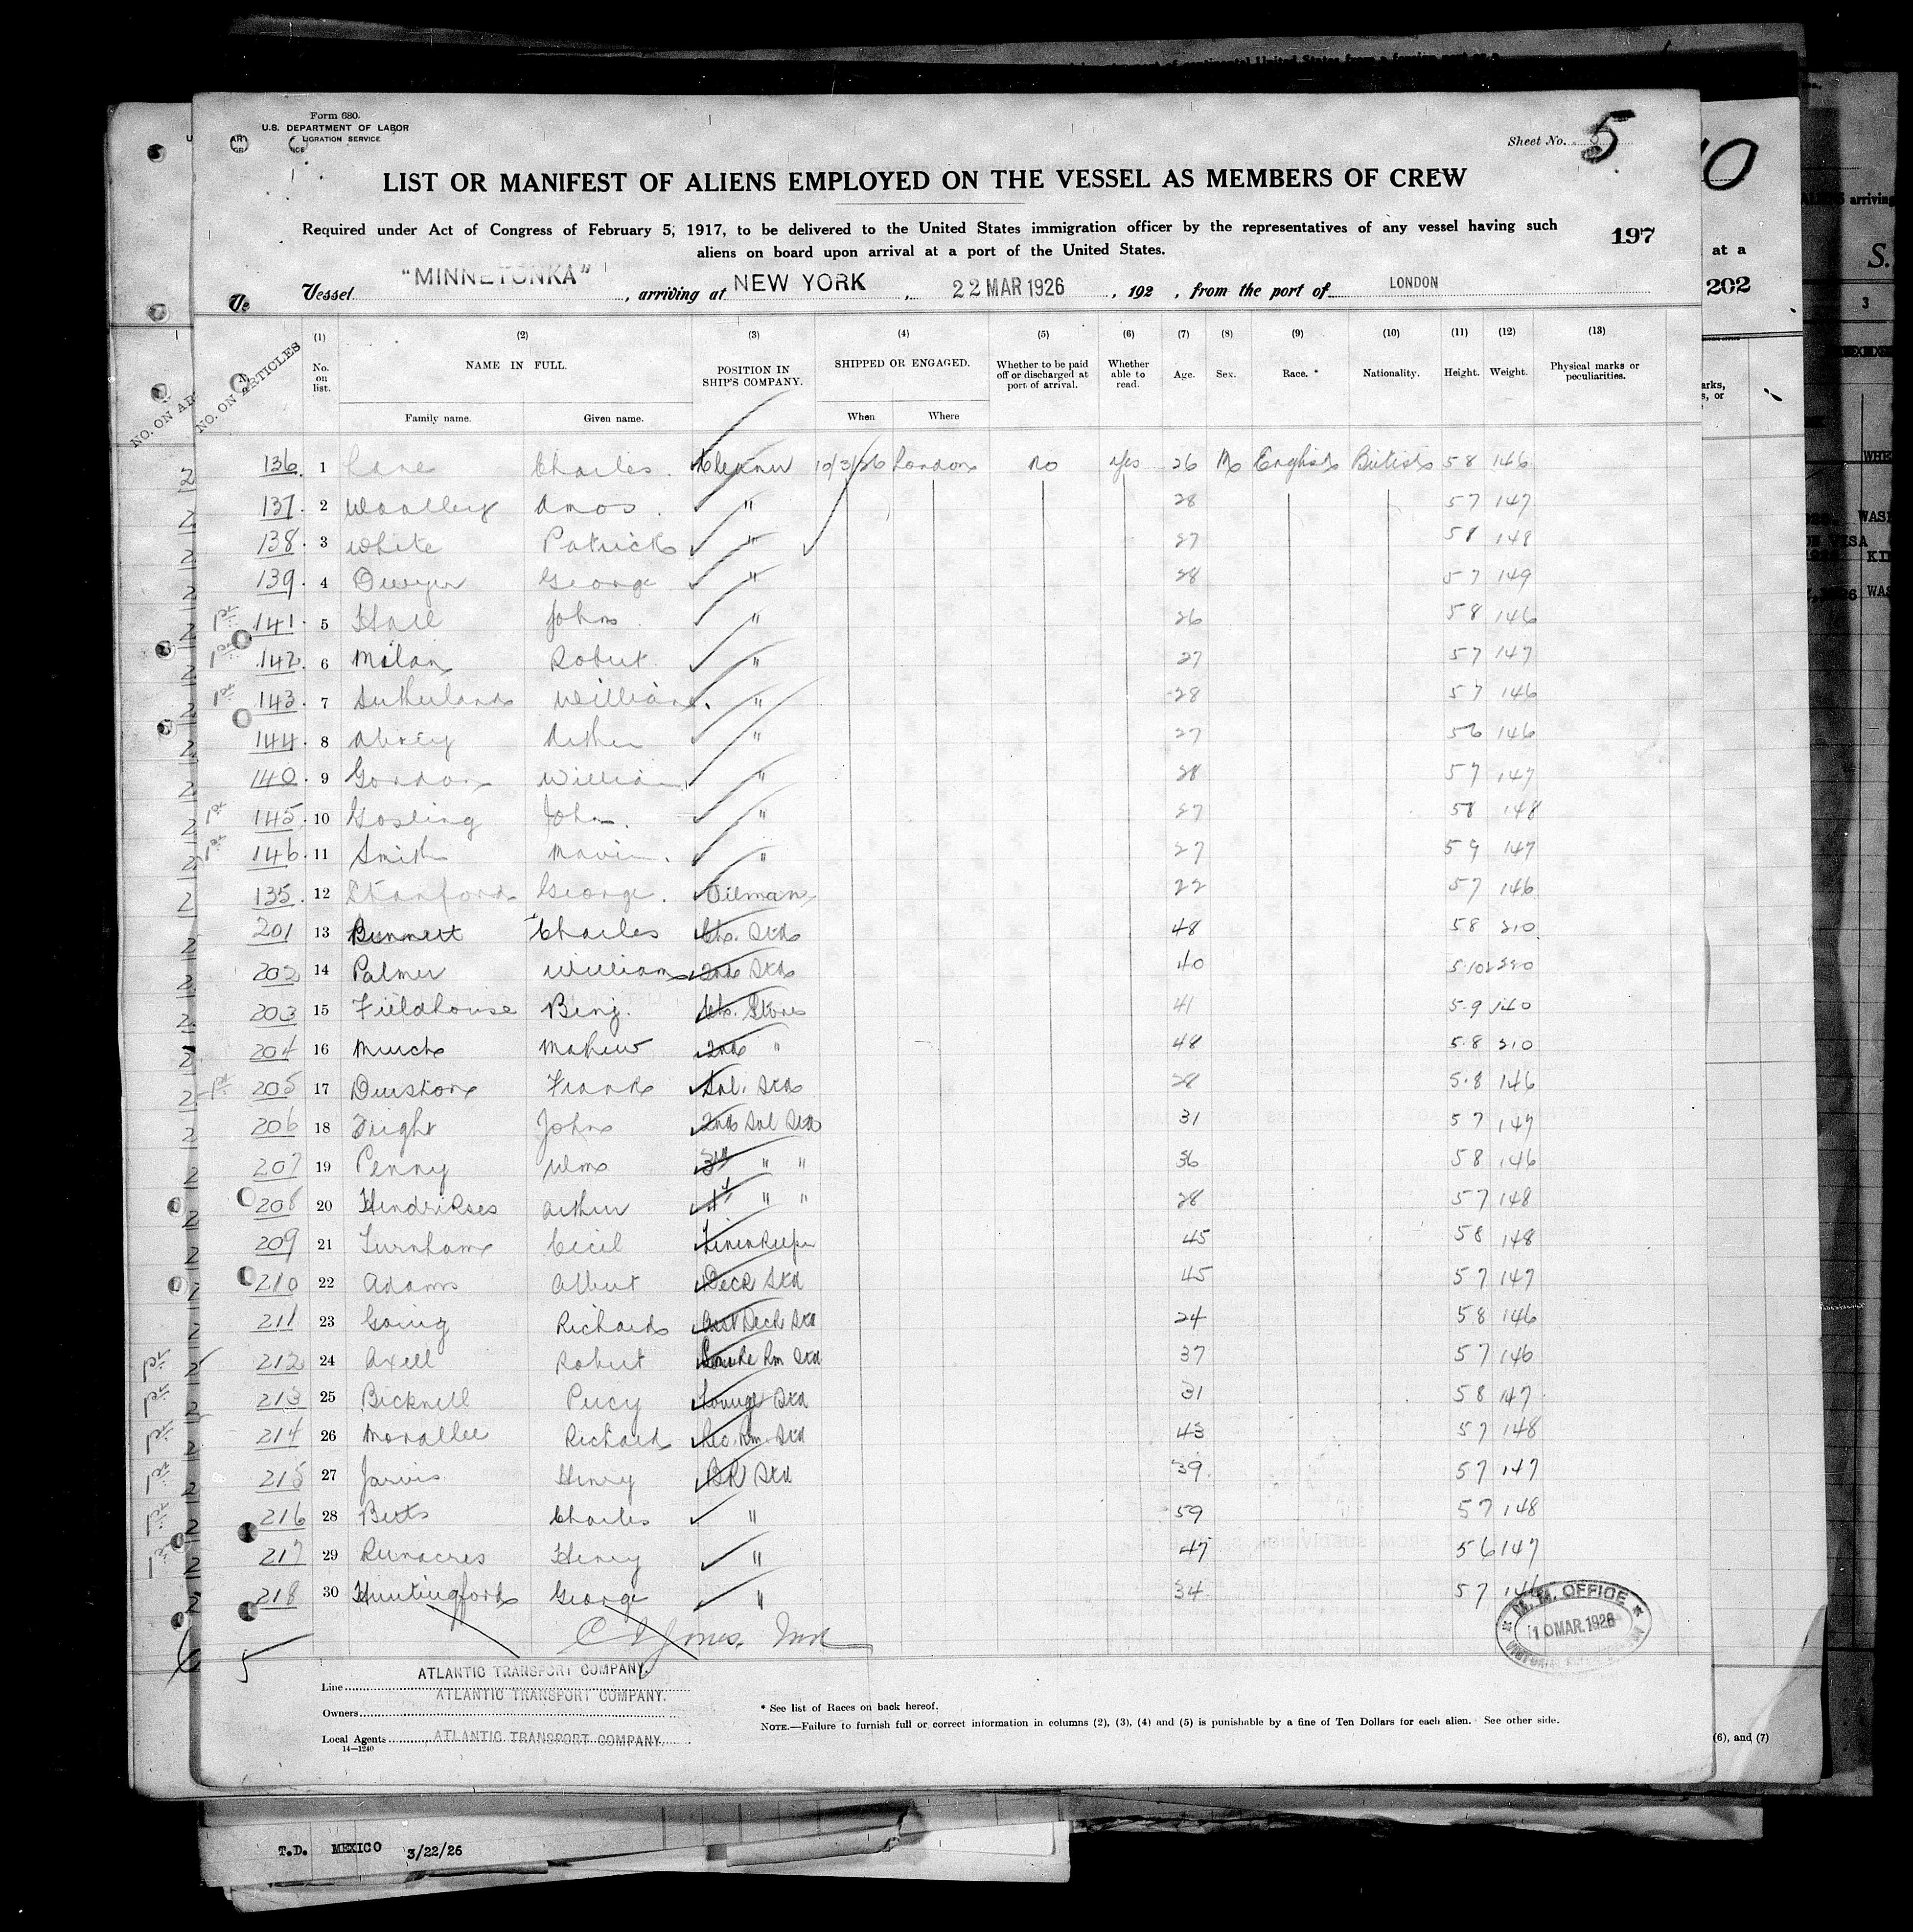 Form 680.
U.S. DEPARTMENT OF LABOR
IGRATION SERVICE
Sheet No. 5
LIST OR MANIFEST OF ALIENS EMPLOYED ON THE VESSEL AS MEMBERS OF CREW
Required under Act of Congress of February 5, 1917, to be delivered to the United States immigration officer by the representatives of any vessel having such
aliens on board upon arrival at a port of the United States.
197
Vessel "MINNETONKA", arriving at NEW YORK, 22 MAR 1926, 192 , from the port of LONDON
NO. ON ARTICLES
(1) (2) (3) (4) (5) (6) (7) (8) (9) (10) (11) (12) (13)
No. on list. NAME IN FULL. POSITION IN SHIP'S COMPANY. SHIPPED OR ENGAGED. Whether to be paid off or discharged at port of arrival. Whether able to read. Age. Sex. Race. * Nationality. Height. Weight. Physical marks or peculiarities.
Family name. Given name. When Where
136 1 Lane Charles Cleaner 10/3/26 London no yes 26 M English British 5 8 146
137 2 Woolley Amos " 28 5 7 147
138 3 White Patrick " 27 5 8 148
139 4 Dwyer George " 28 5 7 149
141 5 Hall John " 26 5 8 146
142 6 Milan Robert " 27 5 7 147
143 7 Sutherland William " 28 5 7 146
144 8 Arthur " 27 5 6 146
140 9 Gordon William " 28 5 7 147
145 10 Gosling John " 27 5 8 148
146 11 Smith " 27 5 9 147
135 12 Stanford George Oilman 22 5 7 146
201 13 Bennett Charles Ch. Std 48 5 8 210
202 14 Palmer William 2nd Std 40 5.10
203 15 Fieldhouse Benj. Ch. Stores 41 5.9 140
204 16 Murch Mathew 2nd " 48 5.8 210
205 17 Durston Frank Sal. Std 28 5.8 146
206 18 John 2nd Sal Std 31 5 7 147
207 19 Penny Wm 3rd " " 36 5 8 146
208 20 Hendrikses Arthur " " 28 5 7 148
209 21 Turnham Cecil Linenkeeper 45 5 8 148
210 22 Adams Albert Deck Std 45 5 7 147
211 23 Going Richard Asst Deck Std 24 5 8 146
212 24 Axell Robert Smoke Rm Std 37 5 7 146
213 25 Bicknell Percy Lounge Std 31 5 8 147
214 26 Morallee Richard Rec. Rm. Std 43 5 7 148
215 27 Jarvis Henry BR Std 39 5 7 147
216 28 Betts Charles " 59 5 7 148
217 29 Runacres Henry " 47 5 6 147
218 30 Huntingford George " 34 5 7 146
M.M. OFFICE
10 MAR. 1926
5
Line ATLANTIC TRANSPORT COMPANY.
Owners ATLANTIC TRANSPORT COMPANY.
Local Agents ATLANTIC TRANSPORT COMPANY.
14—1240
* See list of Races on back hereof.
NOTE.—Failure to furnish full or correct information in columns (2), (3), (4) and (5) is punishable by a fine of Ten Dollars for each alien. See other side.
10
at a
202
(6), and (7)
T.D. MEXICO 3/22/26